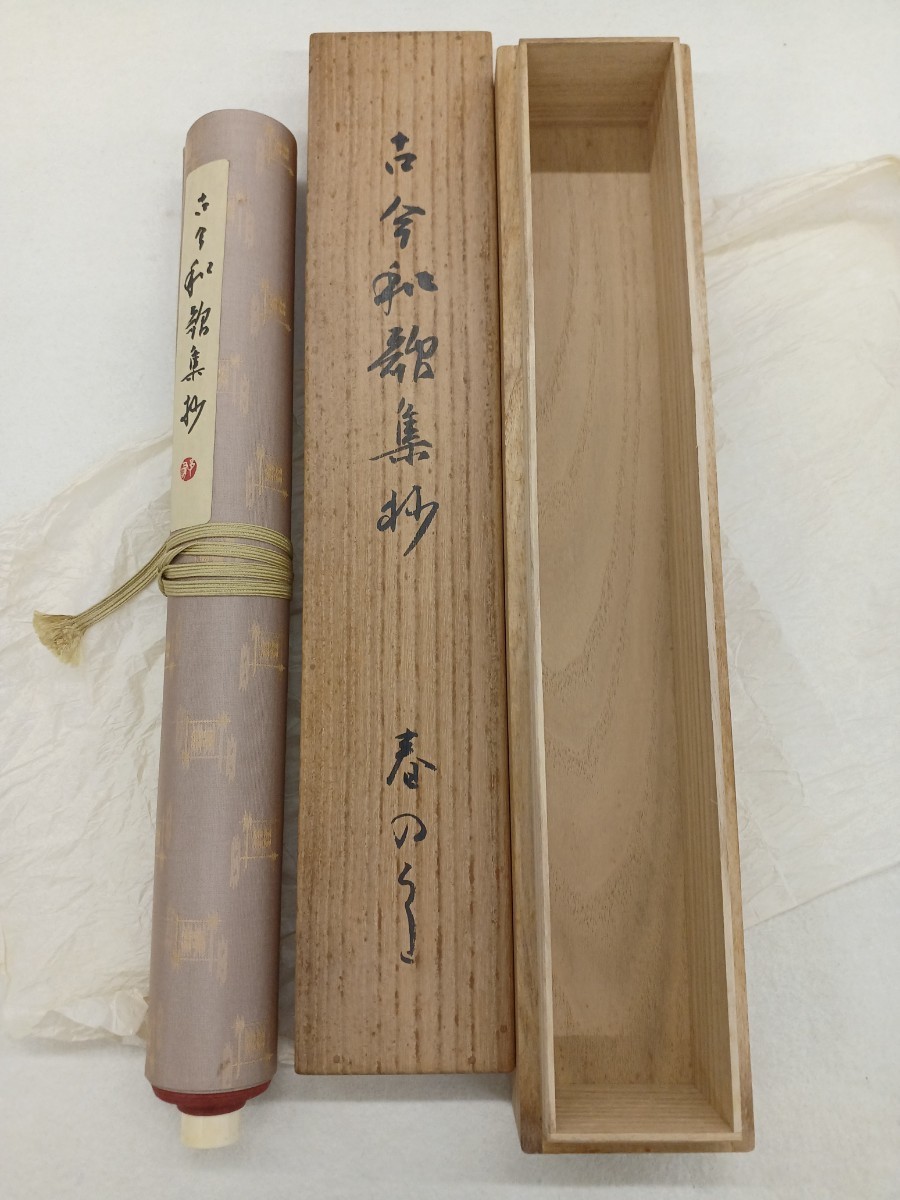 古今和歌集抄
古今和歌集抄
春の